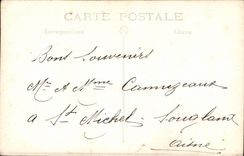 CARTE POSTALE
Correspondance Adresse
Bons Souvenirs
Mr & Mme Cannuzeaux
a St Michel Sougland
Aisne